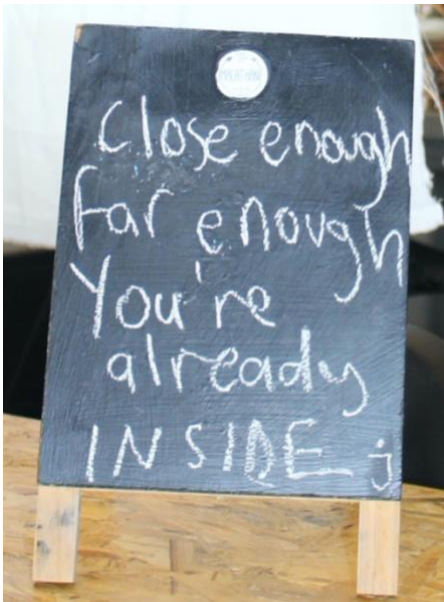 Close enough
Far enough
You're
already
INSIDE j